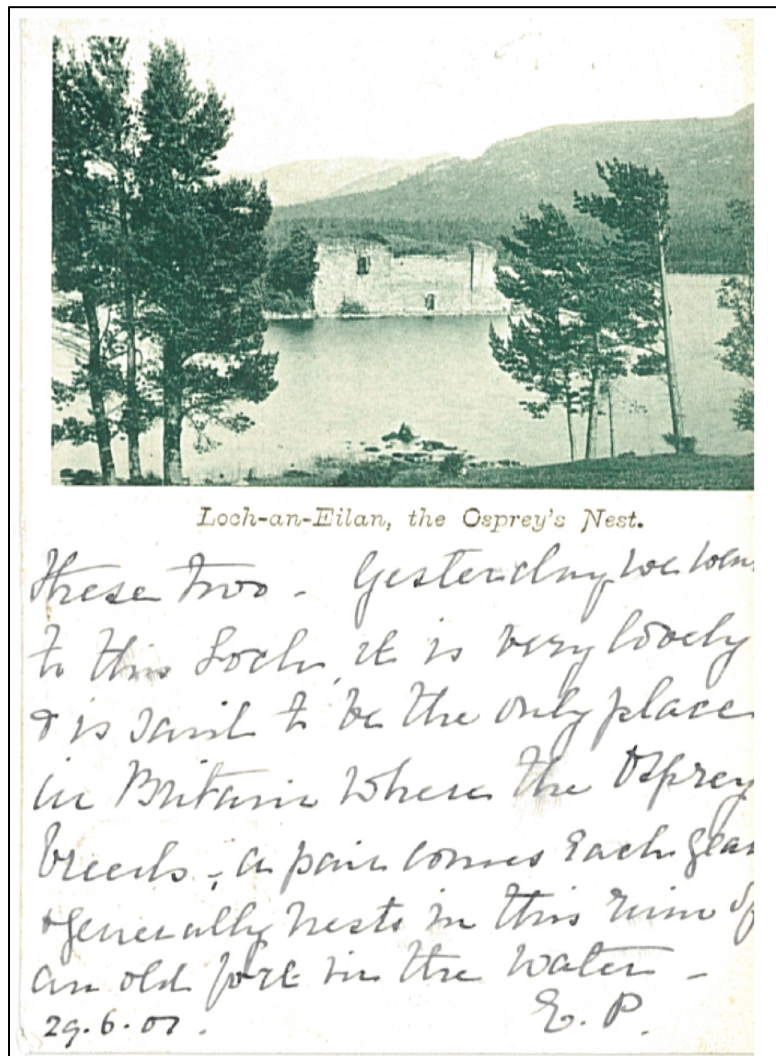 Loch-an-Eilan, the Osprey's Nest.
these two - Yesterday we wen
to this Loch, it is very lovely
& is said to be the only place
in Britain where the Osprey
breeds, a pair comes each year
& generally nests in this ruin of
an old fort in the water -
29.6.01. E. P.